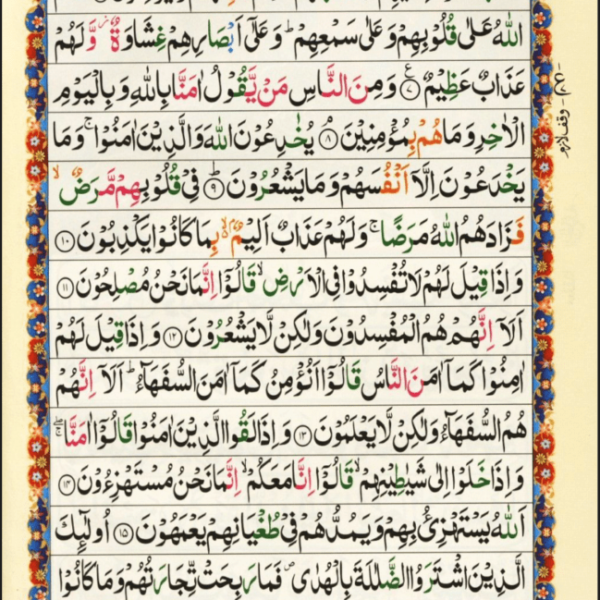 اللّٰهُ عَلٰى قُلُوْبِهِمْ وَعَلٰى سَمْعِهِمْ ؕ وَعَلٰۤى اَبْصَارِهِمْ غِشَاوَةٌ ؗ وَّلَهُمْ
عَذَابٌ عَظِيْمٌ ۟ع ﴿۷﴾ وَمِنَ النَّاسِ مَنْ يَّقُوْلُ اٰمَنَّا بِاللّٰهِ وَبِالْيَوْمِ
الْاٰخِرِ وَمَا هُمْ بِمُؤْمِنِيْنَ ۘ ﴿۸﴾ يُخٰدِعُوْنَ اللّٰهَ وَالَّذِيْنَ اٰمَنُوْا ۚ وَمَا
يَخْدَعُوْنَ اِلَّاۤ اَنْفُسَهُمْ وَمَا يَشْعُرُوْنَ ؕ ﴿۹﴾ فِىْ قُلُوْبِهِمْ مَّرَضٌ ۙ
فَزَادَهُمُ اللّٰهُ مَرَضًا ۚ وَلَهُمْ عَذَابٌ اَلِيْمٌۢ ۙ بِمَا كَانُوْا يَكْذِبُوْنَ ﴿۱۰﴾
وَاِذَا قِيْلَ لَهُمْ لَا تُفْسِدُوْا فِى الْاَرْضِ ۙ قَالُوْۤا اِنَّمَا نَحْنُ مُصْلِحُوْنَ ﴿۱۱﴾
اَلَاۤ اِنَّهُمْ هُمُ الْمُفْسِدُوْنَ وَلٰكِنْ لَّا يَشْعُرُوْنَ ﴿۱۲﴾ وَاِذَا قِيْلَ لَهُمْ
اٰمِنُوْا كَمَاۤ اٰمَنَ النَّاسُ قَالُوْۤا اَنُؤْمِنُ كَمَاۤ اٰمَنَ السُّفَهَآءُ ؕ اَلَاۤ اِنَّهُمْ
هُمُ السُّفَهَآءُ وَلٰكِنْ لَّا يَعْلَمُوْنَ ﴿۱۳﴾ وَاِذَا لَقُوا الَّذِيْنَ اٰمَنُوْا قَالُوْۤا اٰمَنَّا ۖۚ
وَاِذَا خَلَوْا اِلٰى شَيٰطِيْنِهِمْ ۙ قَالُوْۤا اِنَّا مَعَكُمْ ۙ اِنَّمَا نَحْنُ مُسْتَهْزِءُوْنَ ﴿۱۴﴾
اَللّٰهُ يَسْتَهْزِئُ بِهِمْ وَيَمُدُّهُمْ فِىْ طُغْيَانِهِمْ يَعْمَهُوْنَ ﴿۱۵﴾ اُولٰٓئِكَ
الَّذِيْنَ اشْتَرَوُا الضَّلٰلَةَ بِالْهُدٰى ۪ فَمَا رَبِحَتْ تِّجَارَتُهُمْ وَمَا كَانُوْا
وقف لازم